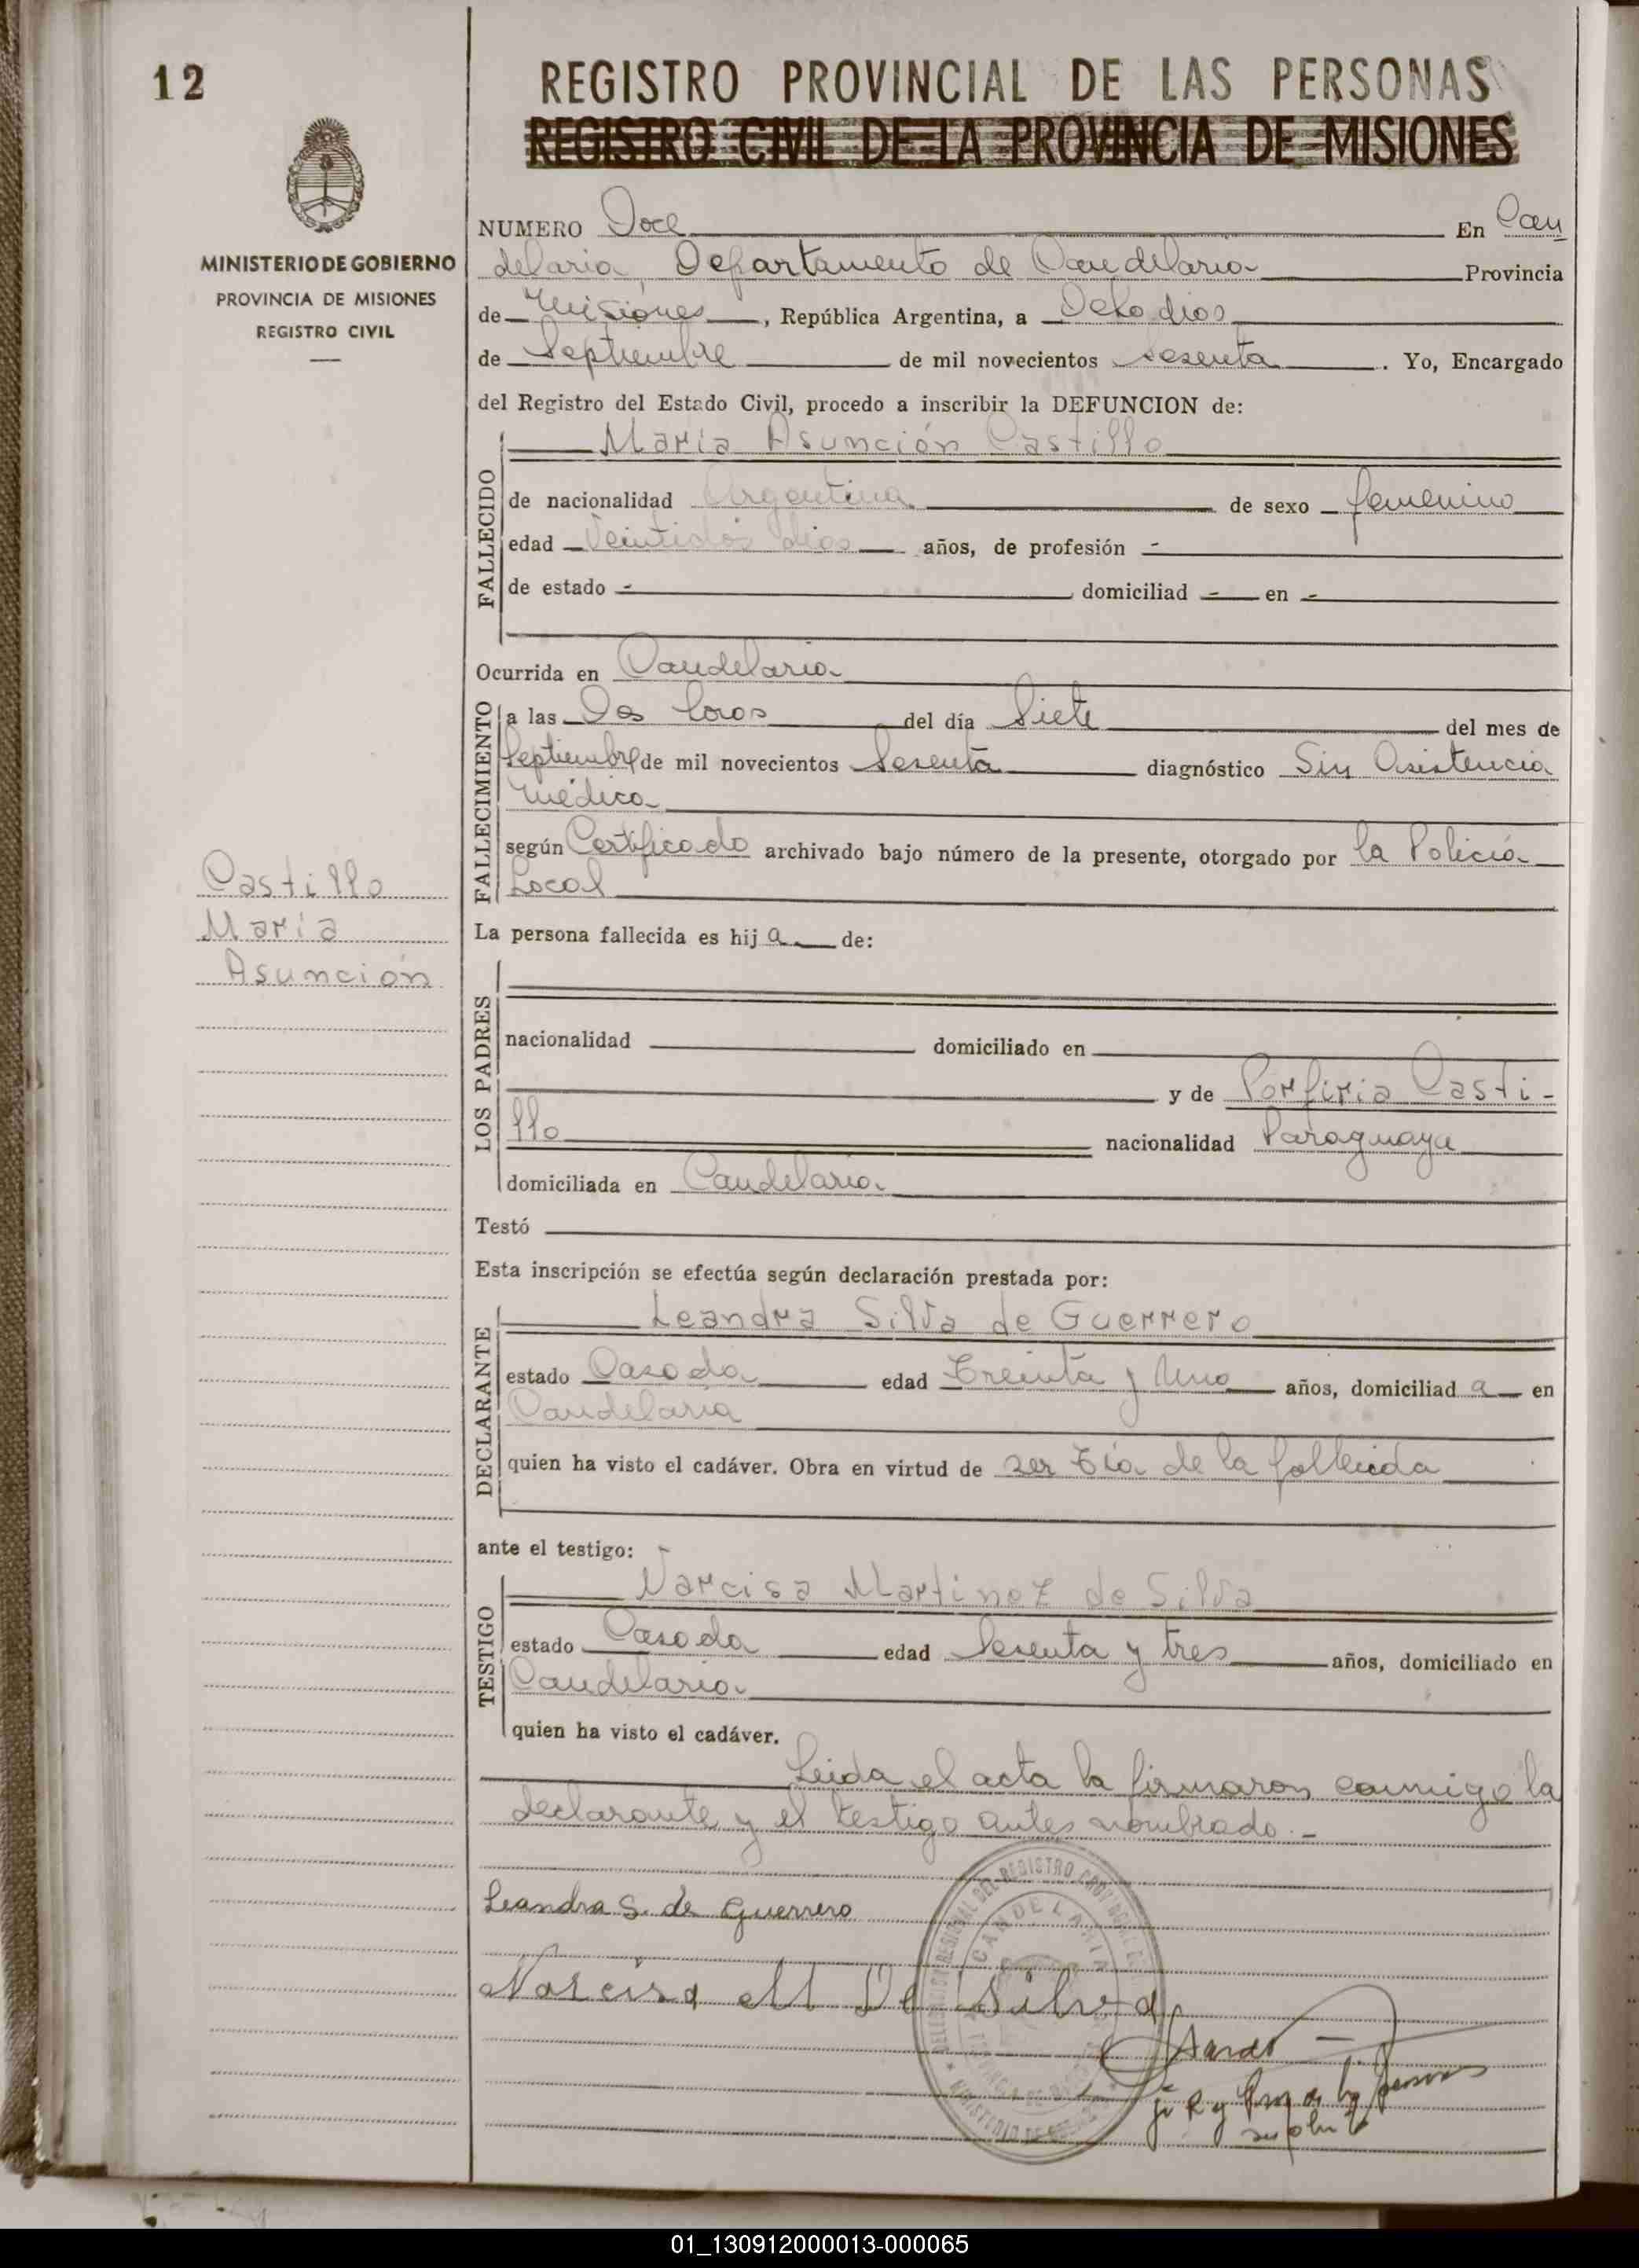 12
REGISTRO PROVINCIAL DE LAS PERSONAS
REGISTRO CIVIL DE LA PROVINCIA DE MISIONES
MINISTERIO DE GOBIERNO
PROVINCIA DE MISIONES
REGISTRO CIVIL
NUMERO Doce En Can
delaria, Departamento de Candelaria Provincia
de Misiones, República Argentina, a Ocho dias
de Septiembre de mil novecientos sesenta. Yo, Encargado
del Registro del Estado Civil, procedo a inscribir la DEFUNCION de:
María Asunción Castillo
FALLECIDO
de nacionalidad Argentina de sexo femenino
edad Veintidos dias años, de profesión -
de estado - domiciliad - en -
Ocurrida en Candelaria
FALLECIMIENTO
a las Dos horas del día Siete del mes de
Septiembre de mil novecientos Sesenta diagnóstico Sin Asistencia
Médica
según Certificado archivado bajo número de la presente, otorgado por la Policía
Local
Castillo
María
Asunción
La persona fallecida es hij a de:
LOS PADRES
nacionalidad domiciliado en
y de Porfiria Casti-
llo nacionalidad Paraguaya
domiciliada en Candelaria
Testó
Esta inscripción se efectúa según declaración prestada por:
DECLARANTE
Leandra Silva de Guerrero
estado Casada edad Treinta y Uno años, domiciliad a en
Candelaria
quien ha visto el cadáver. Obra en virtud de ser tía de la fallecida
ante el testigo:
TESTIGO
Narcisa Martinez de Silva
estado Casada edad Sesenta y tres años, domiciliado en
Candelaria
quien ha visto el cadáver.
Leida el acta la firmaron conmigo la
declarante y el testigo antes nombrado.-
Leandra S. de Guerrero
Narcisa M De Silva
CANDELARIA
01_130912000013-000065